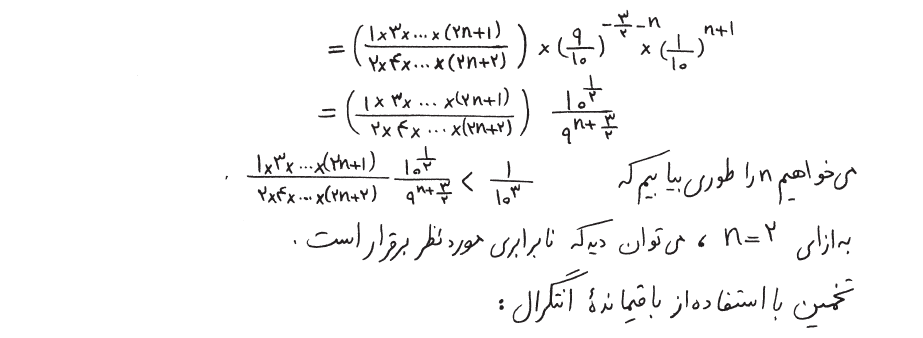 = (۱×۳×...×(۲n+۱) / ۲×۴×...×(۲n+۲)) × (۹/۱۰)^(-۳/۲-n) × (۱/۱۰)^(n+۱)
= (۱×۳×...×(۲n+۱) / ۲×۴×...×(۲n+۲)) ۱۰^(۱/۲) / ۹^(n+۳/۲)
می‌خواهیم n را طوری بیابیم که ۱×۳×...×(۲n+۱) / ۲×۴×...×(۲n+۲) ۱۰^(۱/۲) / ۹^(n+۳/۲) < ۱/۱۰^۳ .
به ازای n=۲ ، می‌توان دید که نابرابری مورد نظر برقرار است .
تخمین با استفاده از باقیماندهٔ انتگرال :